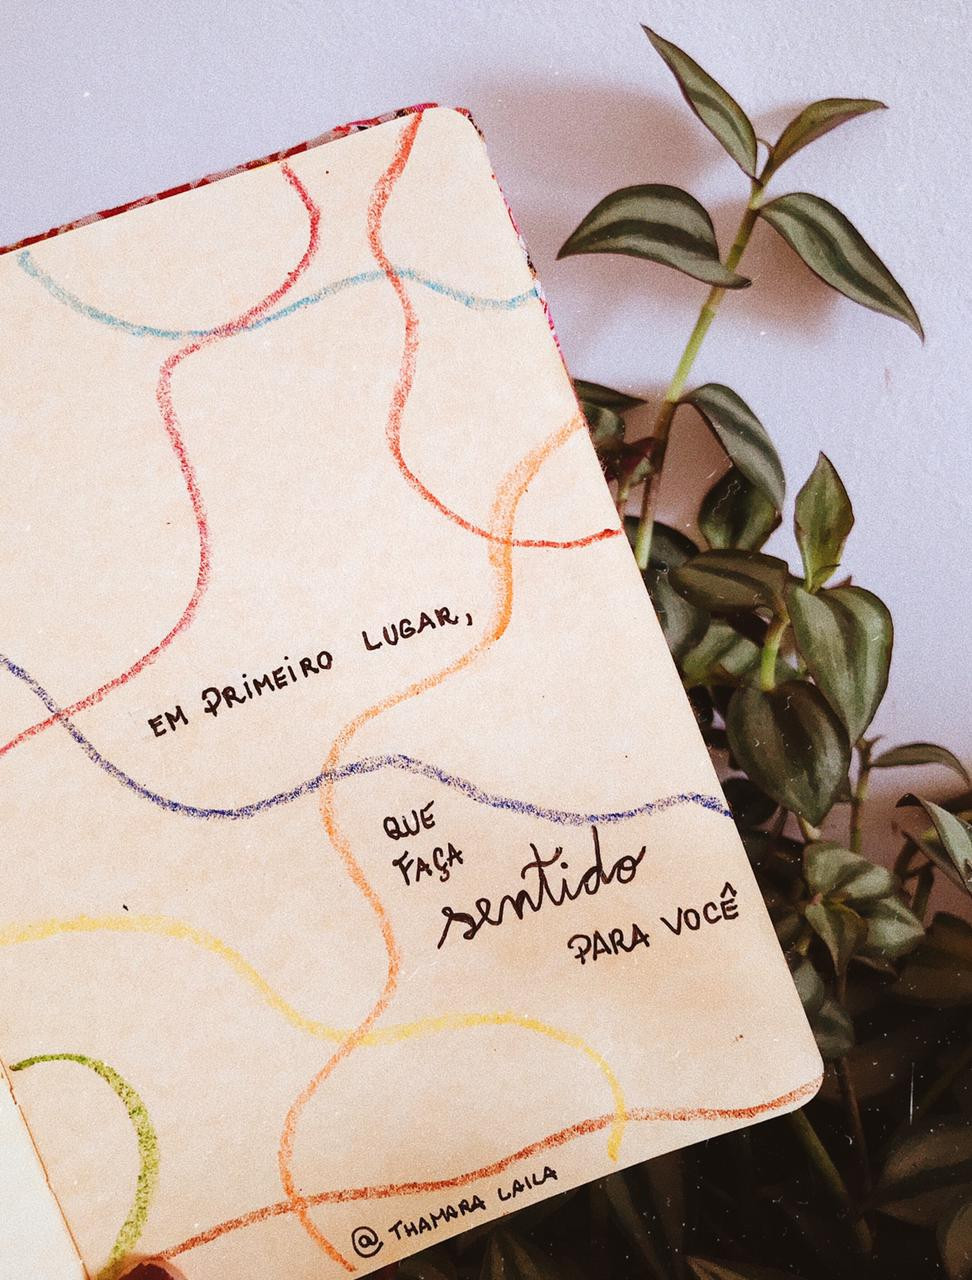 EM PRIMEIRO LUGAR,
QUE
FAÇA
sentido
PARA VOCÊ
@THAMARA LAILA